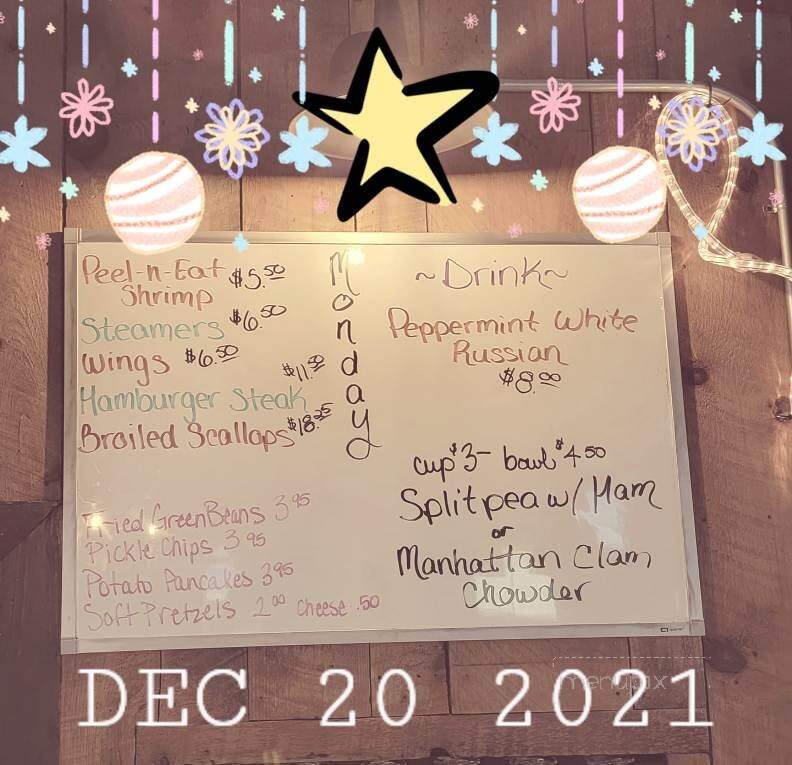 Peel-n-Eat $5.50
Shrimp
Steamers $6.50
Wings $6.50
$11.50
Hamburger Steak
Broiled Scallops $18.25
Monday
Fried Green Beans 3.95
Pickle Chips 3.95
Potato Pancakes 3.95
Soft Pretzels 2.00 cheese .50
~Drink~
Peppermint White
Russian
$8.00
cup $3- bowl $4.50
Split pea w/ Ham
or
Manhattan Clam
Chowder
DEC 20 2021
menupix